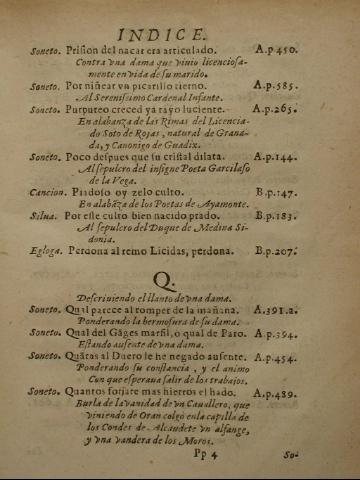 INDICE.
Soneto. Prision del nacar era articulado. A.p 450.
Contra vna dama que viuio licenciosa-
mente en vida de su marido.
Soneto. Por niñear vn picarillo tierno. A.p.585.
Al Serenissimo Cardenal Infante.
Soneto. Purpureo creced ya rayo luciente. A.p.265.
En alabanza de las Rimas del Licencia-
do Soto de Rojas, natural de Grana-
da, y Canonigo de Guadix.
Soneto. Poco despues que su cristal dilata. A.p.144.
Al sepulcro del insigne Poeta Garcilaso
de la Vega.
Cancion. Piadoso oy zelo culto. B.p.147.
En alabãza de los Poetas de Ayamonte.
Silua. Por este culto bien nacido prado. B.p.183.
Al sepulcro del Duque de Medina Si-
donia.
Egloga. Perdona al remo Licidas, perdona. B.p.207.
Q.
Descriuiendo el llanto de vna dama.
Soneto. Qual parece al romper de la mañana. A.391.2.
Ponderando la hermosura de su dama.
Soneto. Qual del Gãges marfil, o qual de Paro. A.p.394.
Estando ausente de vna dama.
Soneto. Quãtas al Duero le he negado ausente. A.p.454.
Ponderando su constancia, y el animo
Con que esperaua salir de los trabajos.
Soneto. Quantos forjare mas hierros el hado. A.p.489.
Burla de la vanidad de vn Cauallero, que
viniendo de Oran colgó en la capilla de
los Condes de Alcaudete vn alfange,
y vna vandera de los Moros.
Pp 4 So-